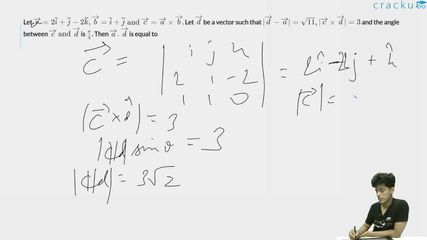 cracku
Let a⃗ = 2î + ĵ − 2k̂, b⃗ = î + ĵ and c⃗ = a⃗ × b⃗. Let d⃗ be a vector such that |d⃗ − a⃗| = √11, |c⃗ × d⃗| = 3 and the angle
between c⃗ and d⃗ is π/4. Then a⃗ . d⃗ is equal to
c⃗ = | i j k | = 2î − 2j + k̂
| 2 1 -2 |
| 1 1 0 | |c⃗| =
|c⃗ × d⃗| = 3
|c||d| sin θ = 3
|c||d| = 3√2